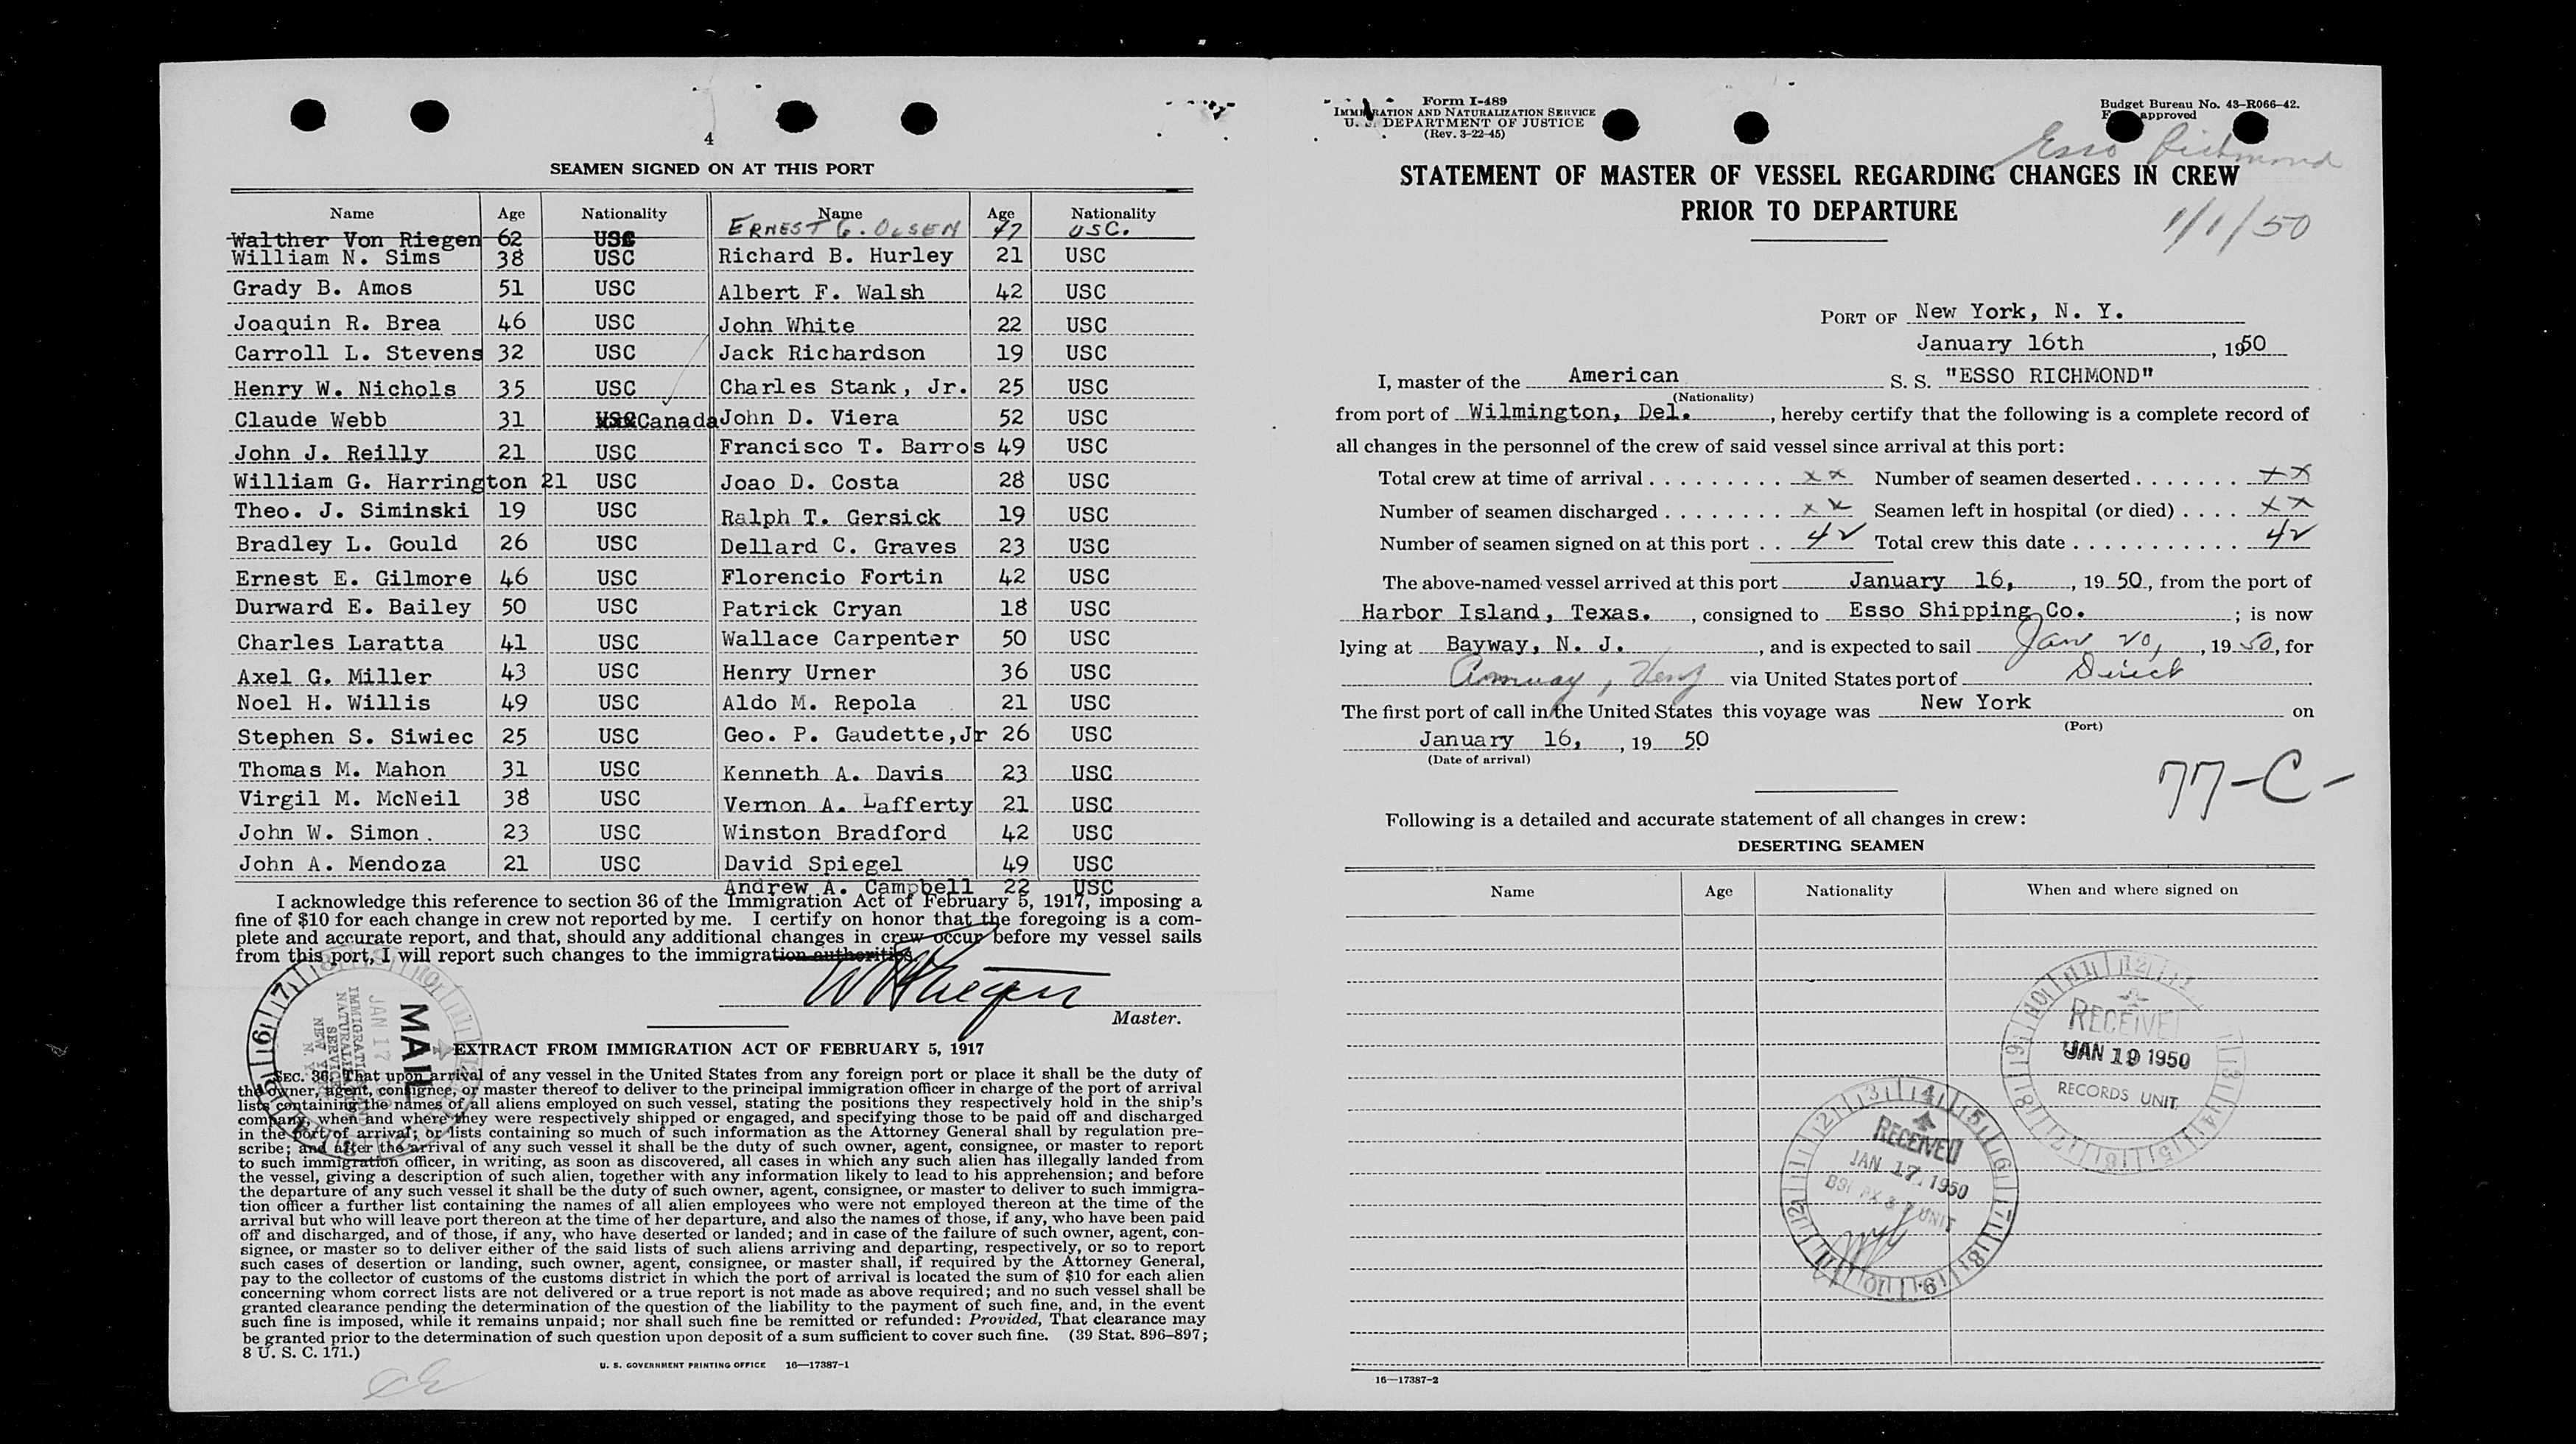 4
SEAMEN SIGNED ON AT THIS PORT
Name Age Nationality Name Age Nationality
Walther Von Riegen 62 USC ERNEST G. OLSEN 47 USC.
William N. Sims 38 USC Richard B. Hurley 21 USC
Grady B. Amos 51 USC Albert F. Walsh 42 USC
Joaquin R. Brea 46 USC John White 22 USC
Carroll L. Stevens 32 USC Jack Richardson 19 USC
Henry W. Nichols 35 USC Charles Stank, Jr. 25 USC
Claude Webb 31 USC Canada John D. Viera 52 USC
John J. Reilly 21 USC Francisco T. Barros 49 USC
William G. Harrington 21 USC Joao D. Costa 28 USC
Theo. J. Siminski 19 USC Ralph T. Gersick 19 USC
Bradley L. Gould 26 USC Dellard C. Graves 23 USC
Ernest E. Gilmore 46 USC Florencio Fortin 42 USC
Durward E. Bailey 50 USC Patrick Cryan 18 USC
Charles Laratta 41 USC Wallace Carpenter 50 USC
Axel G. Miller 43 USC Henry Urner 36 USC
Noel H. Willis 49 USC Aldo M. Repola 21 USC
Stephen S. Siwiec 25 USC Geo. P. Gaudette,Jr 26 USC
Thomas M. Mahon 31 USC Kenneth A. Davis 23 USC
Virgil M. McNeil 38 USC Vernon A. Lafferty 21 USC
John W. Simon. 23 USC Winston Bradford 42 USC
John A. Mendoza 21 USC David Spiegel 49 USC
Andrew A. Campbell 22 USC
I acknowledge this reference to section 36 of the Immigration Act of February 5, 1917, imposing a
fine of $10 for each change in crew not reported by me. I certify on honor that the foregoing is a com-
plete and accurate report, and that, should any additional changes in crew occur before my vessel sails
from this port, I will report such changes to the immigration authorities.
Master.
MAIL
JAN 17
IMMIGRATION AND
NATURALIZATION
SERVICE
NEW YORK
N. Y.
EXTRACT FROM IMMIGRATION ACT OF FEBRUARY 5, 1917
SEC. 36. That upon arrival of any vessel in the United States from any foreign port or place it shall be the duty of
the owner, agent, consignee, or master thereof to deliver to the principal immigration officer in charge of the port of arrival
lists containing the names of all aliens employed on such vessel, stating the positions they respectively hold in the ship's
company, when and where they were respectively shipped or engaged, and specifying those to be paid off and discharged
in the port of arrival; or lists containing so much of such information as the Attorney General shall by regulation pre-
scribe; and after the arrival of any such vessel it shall be the duty of such owner, agent, consignee, or master to report
to such immigration officer, in writing, as soon as discovered, all cases in which any such alien has illegally landed from
the vessel, giving a description of such alien, together with any information likely to lead to his apprehension; and before
the departure of any such vessel it shall be the duty of such owner, agent, consignee, or master to deliver to such immigra-
tion officer a further list containing the names of all alien employees who were not employed thereon at the time of the
arrival but who will leave port thereon at the time of her departure, and also the names of those, if any, who have been paid
off and discharged, and of those, if any, who have deserted or landed; and in case of the failure of such owner, agent, con-
signee, or master so to deliver either of the said lists of such aliens arriving and departing, respectively, or so to report
such cases of desertion or landing, such owner, agent, consignee, or master shall, if required by the Attorney General,
pay to the collector of customs of the customs district in which the port of arrival is located the sum of $10 for each alien
concerning whom correct lists are not delivered or a true report is not made as above required; and no such vessel shall be
granted clearance pending the determination of the question of the liability to the payment of such fine, and, in the event
such fine is imposed, while it remains unpaid; nor shall such fine be remitted or refunded: Provided, That clearance may
be granted prior to the determination of such question upon deposit of a sum sufficient to cover such fine. (39 Stat. 896–897;
8 U. S. C. 171.)
U. S. GOVERNMENT PRINTING OFFICE 16—17387-1
Form I-489
IMMIGRATION AND NATURALIZATION SERVICE
U. S. DEPARTMENT OF JUSTICE
(Rev. 3-22-45)
Budget Bureau No. 43-R066-42.
approved
Esso Richmond
STATEMENT OF MASTER OF VESSEL REGARDING CHANGES IN CREW
PRIOR TO DEPARTURE
1/1/50
PORT OF New York, N. Y.
January 16th, 1950
I, master of the American S. S. "ESSO RICHMOND"
(Nationality)
from port of Wilmington, Del., hereby certify that the following is a complete record of
all changes in the personnel of the crew of said vessel since arrival at this port:
Total crew at time of arrival . . . . . . . . . x x Number of seamen deserted . . . . . . . x x
Number of seamen discharged . . . . . . . . x x Seamen left in hospital (or died) . . . . x x
Number of seamen signed on at this port . . 42 Total crew this date . . . . . . . . . . . 42
The above-named vessel arrived at this port January 16, , 19 50, from the port of
Harbor Island, Texas. , consigned to Esso Shipping Co. ; is now
lying at Bayway, N. J. , and is expected to sail Jan 20, , 19 50, for
Amuay, Venz via United States port of Direct
The first port of call in the United States this voyage was New York on
(Port)
January 16, , 19 50
(Date of arrival)
77-C-
Following is a detailed and accurate statement of all changes in crew:
DESERTING SEAMEN
Name Age Nationality When and where signed on
RECEIVED
JAN 19 1950
RECORDS UNIT
RECEIVED
JAN 17 1950
UNIT
16—17387-2